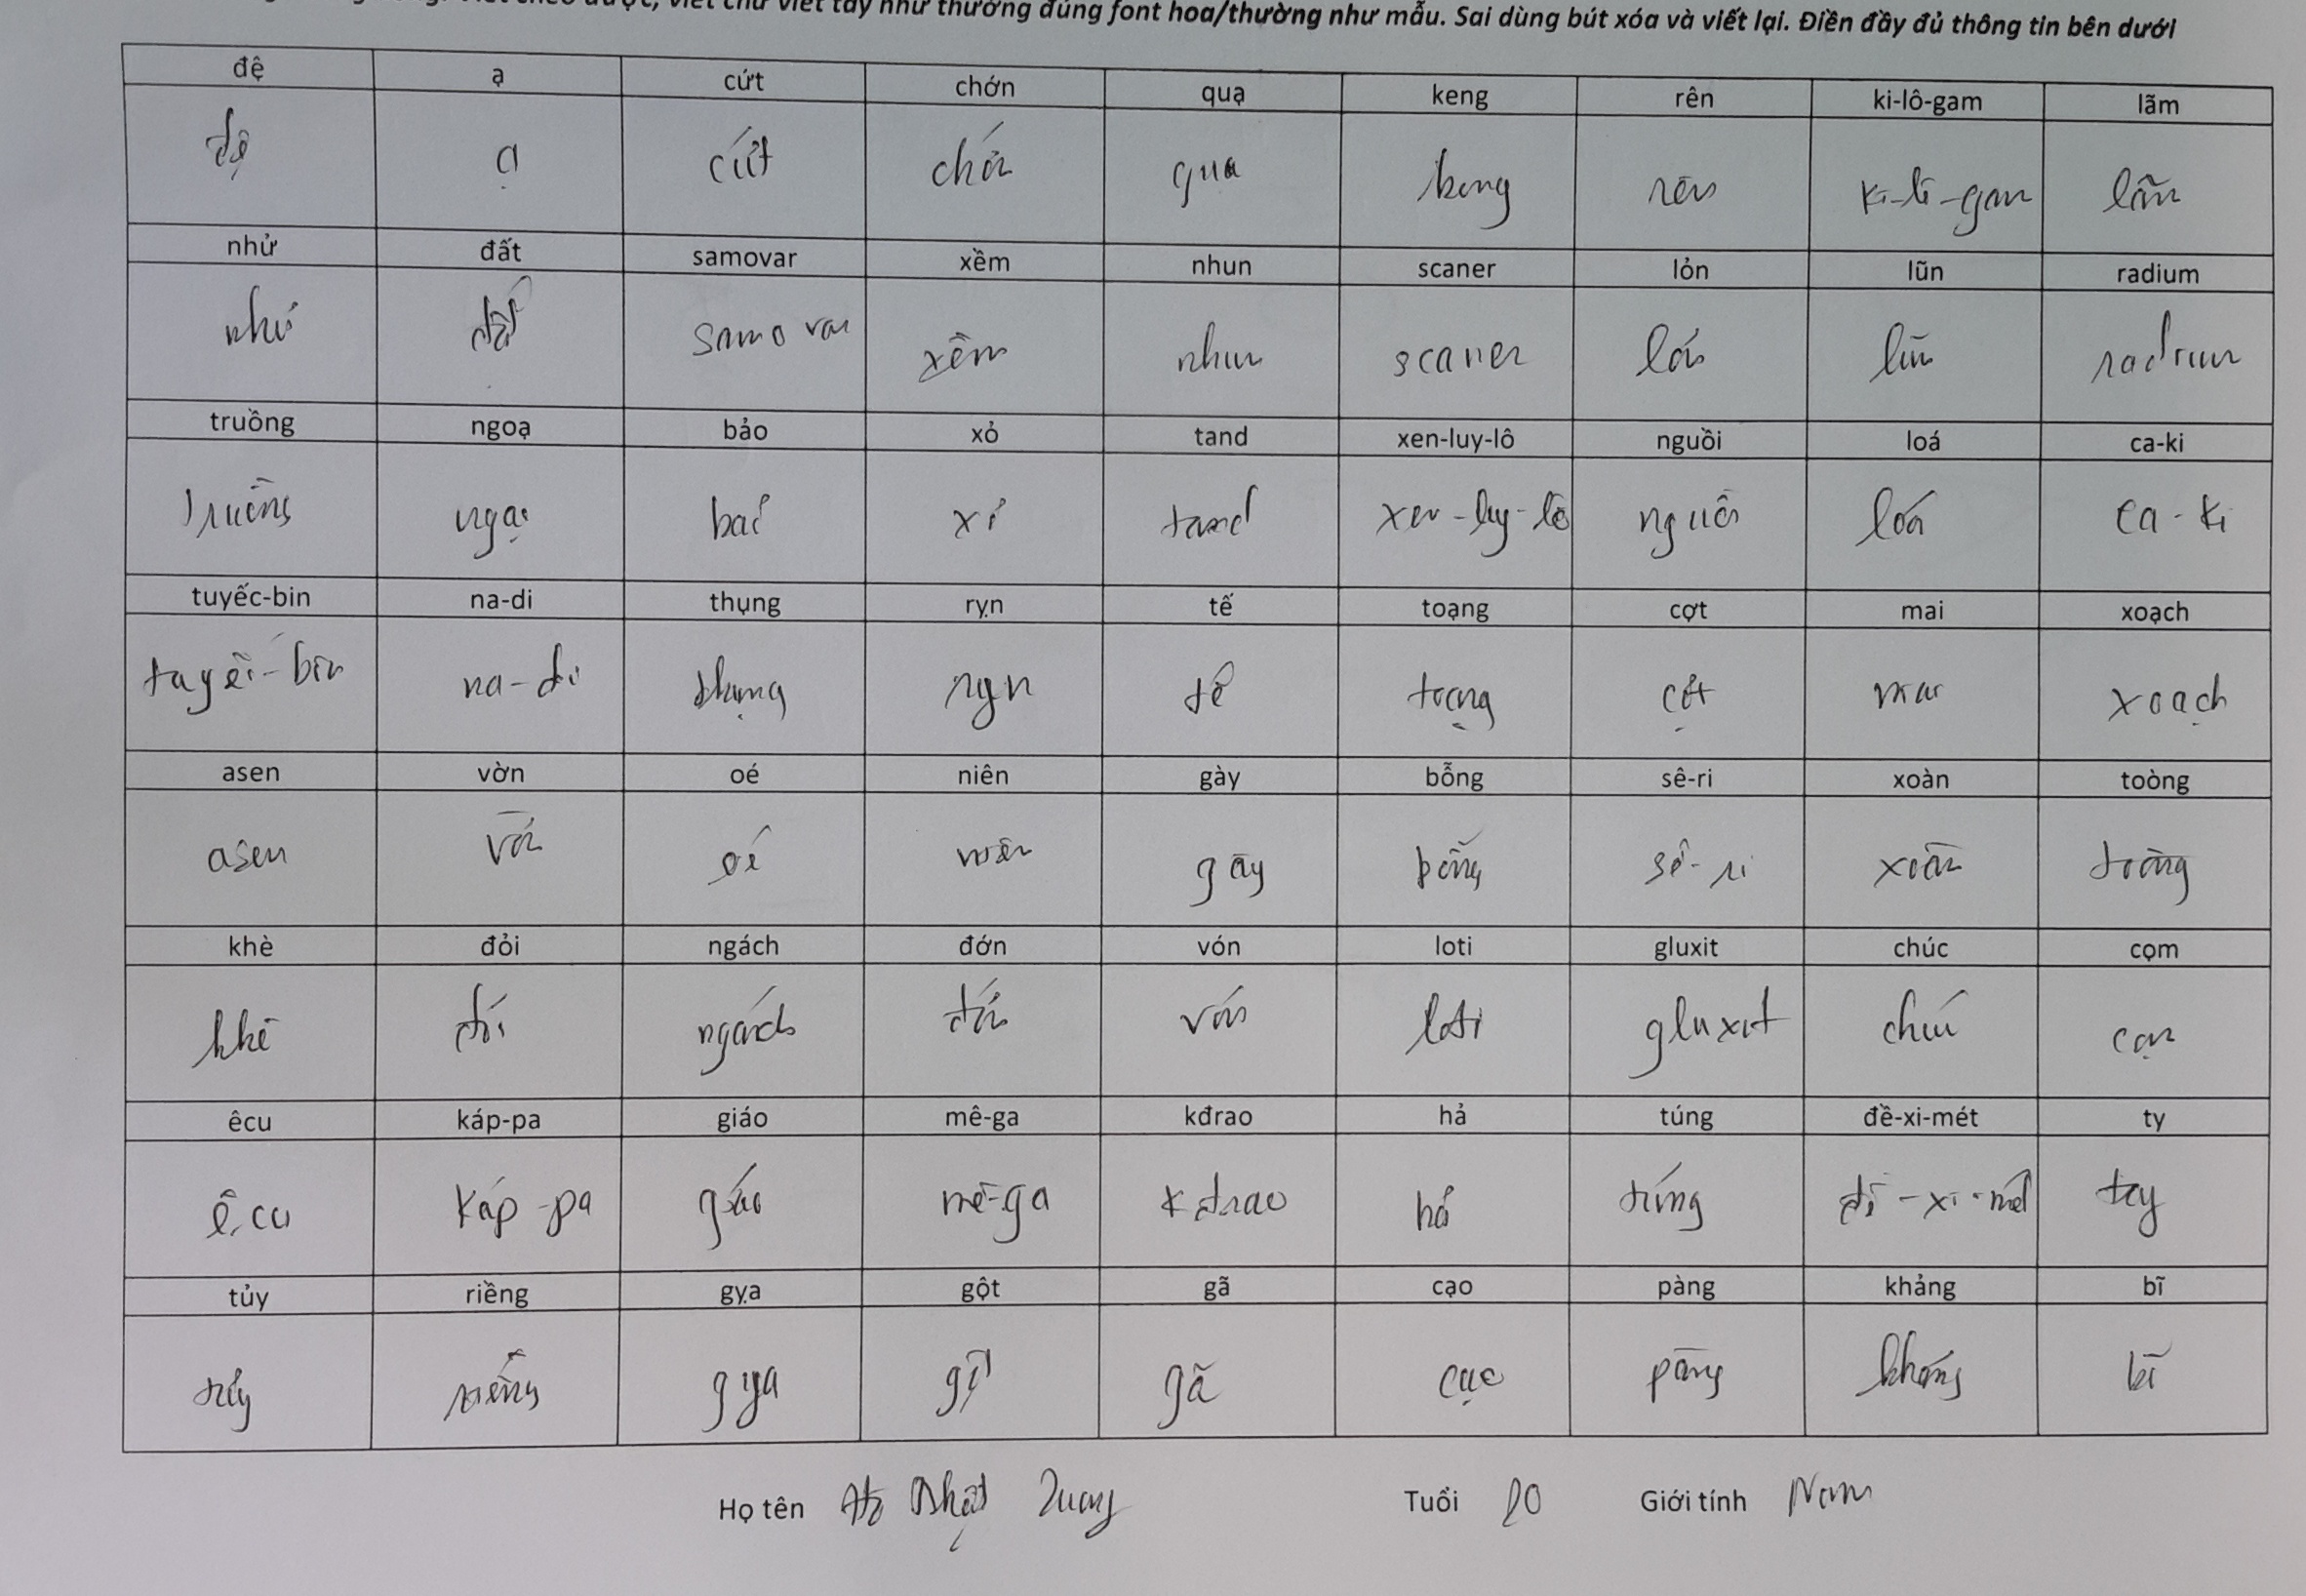 viết chữ viết tay như thường đúng font hoa/thường như mẫu. Sai dùng bút xóa và viết lại. Điền đầy đủ thông tin bên dưới
đệ ạ cứt chớn quạ keng rên ki-lô-gam lãm
đệ ạ cứt chớn qua keng rên ki-lô-gam lãm
nhử đất samovar xềm nhun scaner lỏn lũn radium
nhử đất samovar xềm nhun scaner lỏn lũn radium
truồng ngoạ bảo xỏ tand xen-luy-lô nguồi loá ca-ki
truồng ngoạ bảo xỏ tand xen-luy-lô nguồi loá ca-ki
tuyếc-bin na-di thụng rỵn tế toạng cợt mai xoạch
tuyếc-bin na-di thụng ryn tế toạng cợt mai xoạch
asen vờn oé niên gày bỗng sê-ri xoàn toòng
asen vờn oé niên gày bỗng sê-ri xoàn toòng
khè đỏi ngách đớn vón loti gluxit chúc cọm
khè đỏi ngách đớn vón loti gluxit chúc cọm
êcu káp-pa giáo mê-ga kđrao hả túng đề-xi-mét ty
êcu káp-pa giáo mê-ga kđrao hả túng đề-xi-mét ty
tủy riềng gỵa gột gã cạo pàng khảng bĩ
tủy riềng gya gột gã cạo pàng khảng bĩ
Họ tên Nhật Quang Tuổi 20 Giới tính Nam